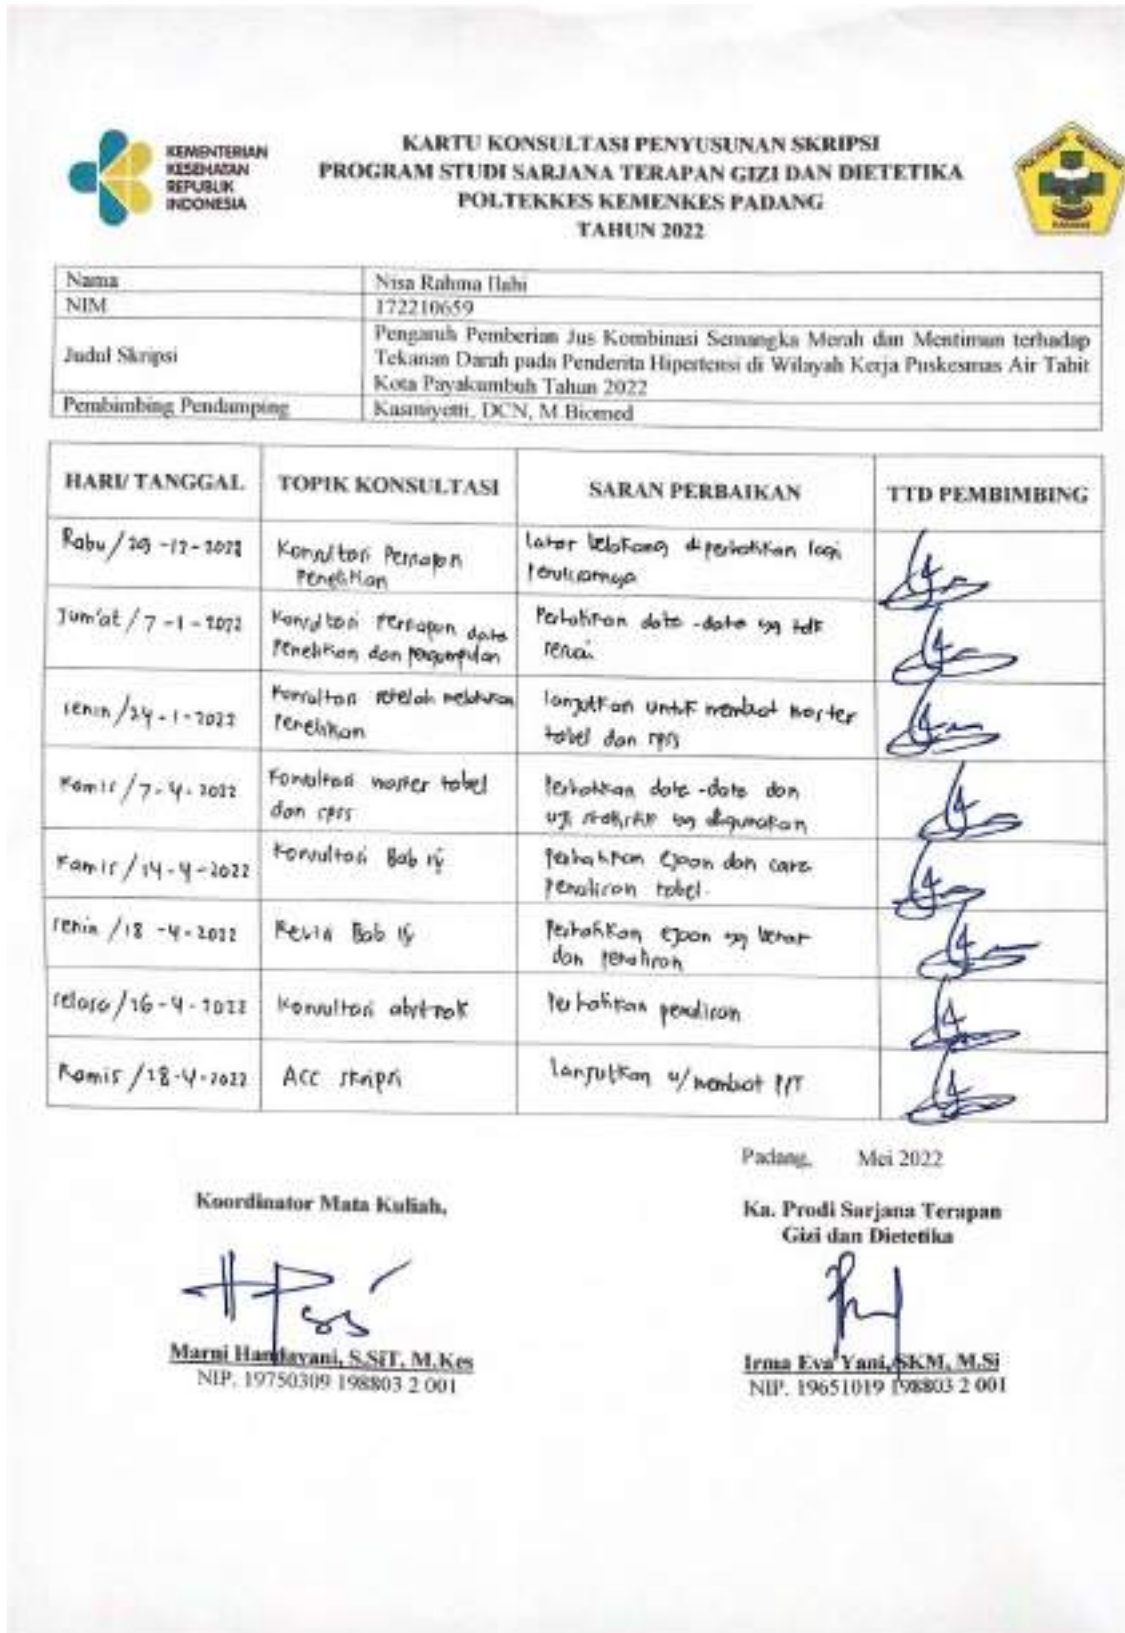 KEMENTERIAN
KESEHATAN
REPUBLIK
INDONESIA
KARTU KONSULTASI PENYUSUNAN SKRIPSI
PROGRAM STUDI SARJANA TERAPAN GIZI DAN DIETETIKA
POLTEKKES KEMENKES PADANG
TAHUN 2022
PADANG
Nama Nisa Rahma Ilahi
NIM 172210659
Judul Skripsi Pengaruh Pemberian Jus Kombinasi Semangka Merah dan Mentimun terhadap
Tekanan Darah pada Penderita Hipertensi di Wilayah Kerja Puskesmas Air Tabit
Kota Payakumbuh Tahun 2022
Pembimbing Pendamping Kasmiyetti, DCN, M.Biomed
HARI/ TANGGAL TOPIK KONSULTASI SARAN PERBAIKAN TTD PEMBIMBING
Rabu / Konsultasi Persiapan
Penelitian
Latar belakang diperhatikan lagi
penulisannya
Jum'at / 7-1-2022 Konsultasi Persiapan data
Penelitian dan pengumpulan
Perhatikan data-data yg tdk
sesuai
Senin / 24-1-2022 Konsultasi setelah melakukan
Penelitian
lanjutkan untuk membuat master
tabel dan spss
Kamis / 7-4-2022 Konsultasi master tabel
dan spss
Perhatikan data-data dan
uji statistik yg digunakan
Kamis / 14-4-2022 Konsultasi Bab IV
Perhatikan ejaan dan cara
penulisan tabel.
Senin / 18-4-2022 Revisi Bab IV
Perhatikan ejaan yg benar
dan penulisan
Selasa / 26-4-2022 Konsultasi abstrak Perhatikan penulisan
Kamis / 28-4-2022 ACC skripsi lanjutkan u/ membuat PPT
Padang, Mei 2022
Koordinator Mata Kuliah,
Ka. Prodi Sarjana Terapan
Gizi dan Dietetika
Marni Handayani, S.SiT, M.Kes
NIP. 19750309 198803 2 001
Irma Eva Yani, SKM, M.Si
NIP. 19651019 198803 2 001